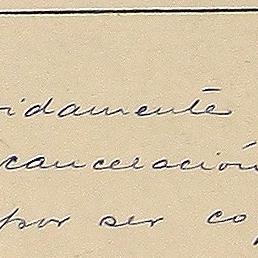 idamente
cancelación
por ser co